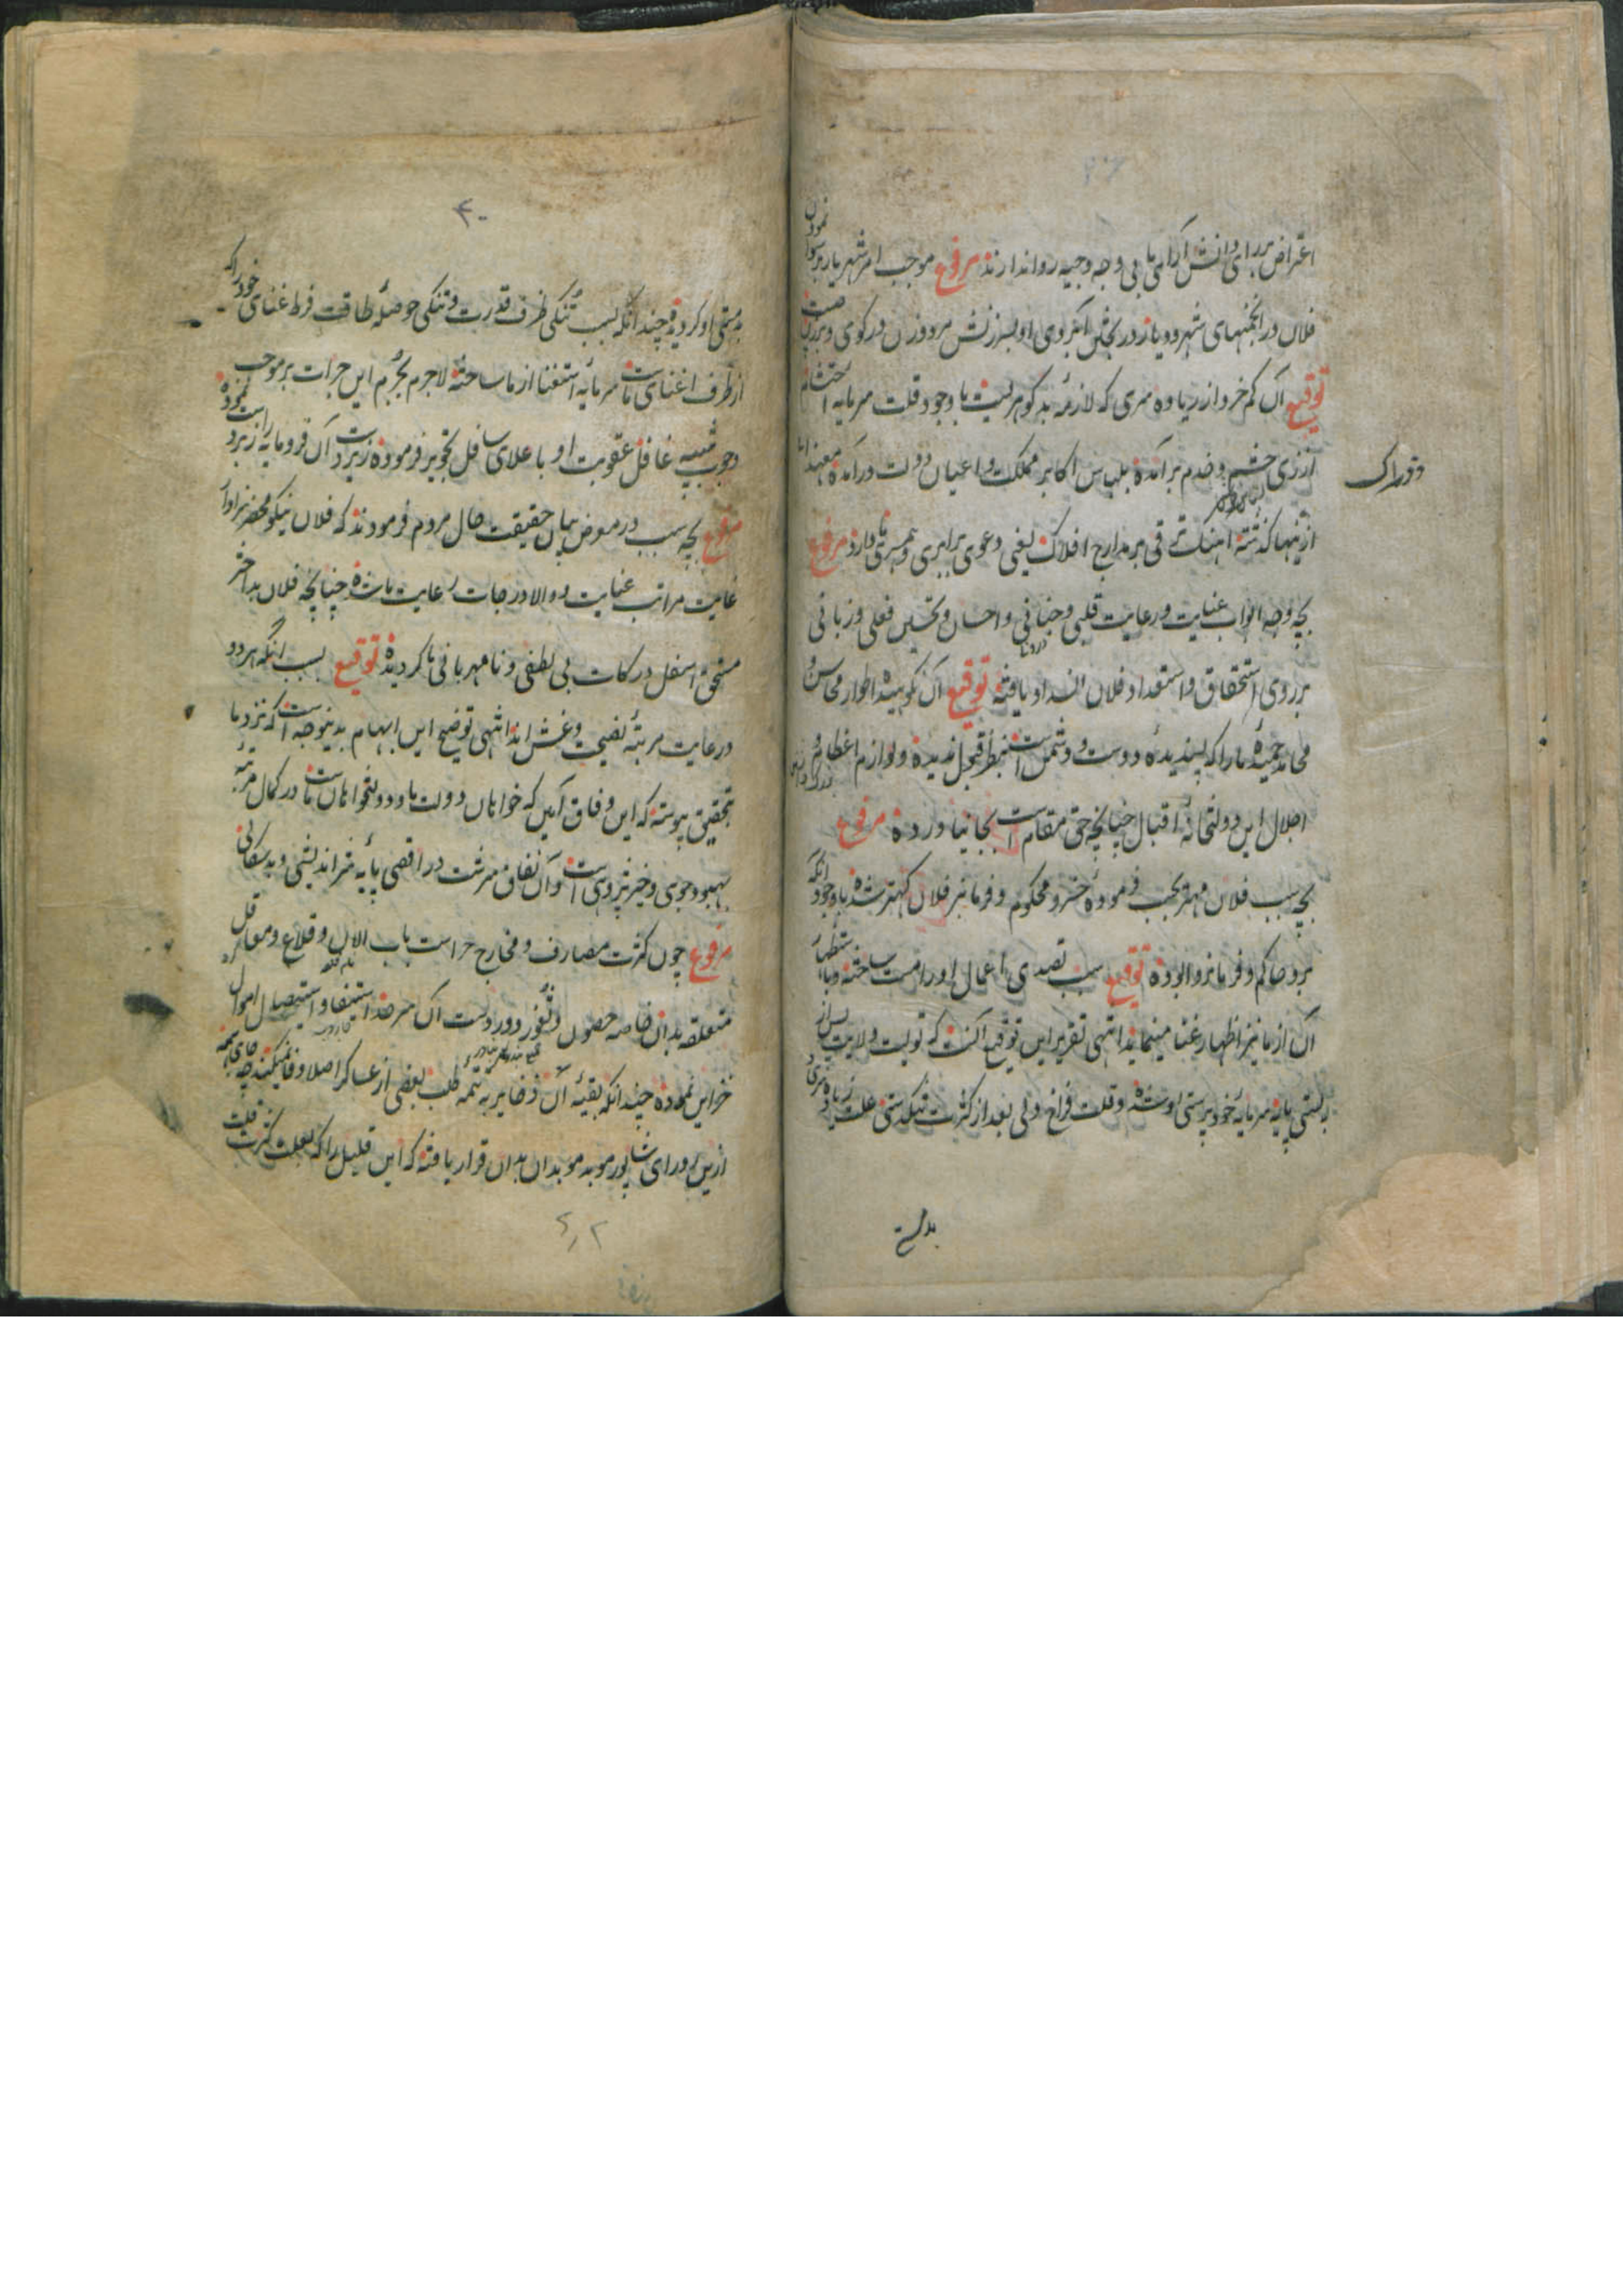 اعتراض بر رای دانش آرای ما بی وجه وجیه روا ندارند مرفوع موجب امر شهریار بر سوا نمودن
فلان در انجمنهای شهر و دیار و ریختن آبروی او بسرزنش مرد و زن در کوی و برزن چیست
توقیع آن کم خرد از زیاده سری که لازمه بد گوهریست با وجود قلت سرمایه احتشام
از زی حشم و خدم برآمده بلباس اکابر مملکت و اعیان دولت درآمده معهذا با
ازینها گذشته آهنگ ترقی بر مدارج افلاک یعنی دعوی برابری و همسری ما دارد مرفوع
بچه وجه ابواب عنایت و رعایت قلبی و جنانی و احسان و تحسین فعلی و زبانی
بر روی استحقاق و استعداد فلان انسداد یافته توقیع آن نکوهیده اطوار محاسن و
محامد حمیده ما را که پسندیده دوست و دشمن است بنظر تبجیل ندیده و لوازم اعظام و
اجلال این دولتخانه اقبال چنانچه حق مقام است بجا نیاورده مرفوع
بچه سبب فلان مهتر بحسب فرموده خسرو محکوم و فرمانبر فلان کهتر شده با وجود آنکه
برو حاکم و فرمانروا بوده توقیع بسبب تصدی اعمال او را مست ساخته و با استظهار
آن از ما نیز اظهار غنا مینماید انتهی تقریر این توقیع آنست که تولیت ولایت پس از
پستی پایه سرمایه خود پرستی او شده و قلت فراخ دلی بعد از کثرت تنگدستی علت زیاده سری و
بدمستی
۴۰
بدمستی او گردیده چندانکه بسبب تنکی ظرف قدرت و تنگی حوصله طاقت فرط غنای خود را که
از طرف اغنای ماست سرمایه استغنا از ما ساخته لاجرم بجرم این جرات بر موجب
وجوب تنبیه غافل عقوبت او باعلای سافل تجویز فرموده زیردست آن فرومایه زبردست نموده
مرفوع بچه سبب در معرض بیان حقیقت حال مردم فرمودند که فلان نیکو محضر سزاوار
غایت مراتب عنایت و والا درجات رعایت ما شده چنانچه فلان بد اختر
مستحق اسفل درکات بی لطفی و نامهربانی ما گردیده توقیع بسبب آنکه هر دو
در غایت مرتبه نصیحت و غش اند انتهی توضیح این ابهام بدینوجه است که نزد ما
بتحقیق پیوسته که این وفاق آیین که خواهان دولت ما و دولتخواهان ماست در کمال مرتبه
بهبود جوی و خیرپژوهی است و آن نفاق سرشت در اقصی پایه شر اندیشی و بدسگالی
مرفوع چون کثرت مصارف و مخارج حراست باب الابواب و قلاع و معاقل
متعلقه بدان خاصه حصون و ثغور دوردست آن سرحد استیفا و استیصال اموال
خزاین نموده چندانکه بقیه آن ذخایر به تتمه طلب بعضی از عساکر اصلا وفا نمیکند چه جای همه
ازین رو رای شاپور موبد موبدان بدان قرار یافته که این قلیل را که بعلت کثرت قلت